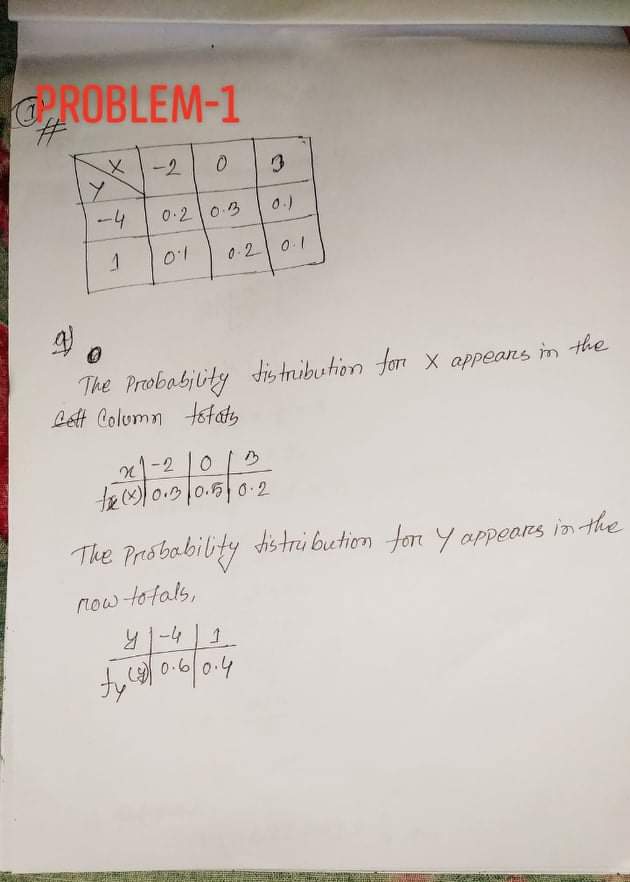 PROBLEM-1
1
X -2 0 3
Y
-4 0.2 0.3 0.1
1 0.1 0.2 0.1
a)
The Probability distribution for X appears in the
Column totals
x -2 0 3
fx(x) 0.3 0.5 0.2
The Probability distribution for Y appears in the
row totals,
y -4 1
fy(y) 0.6 0.4